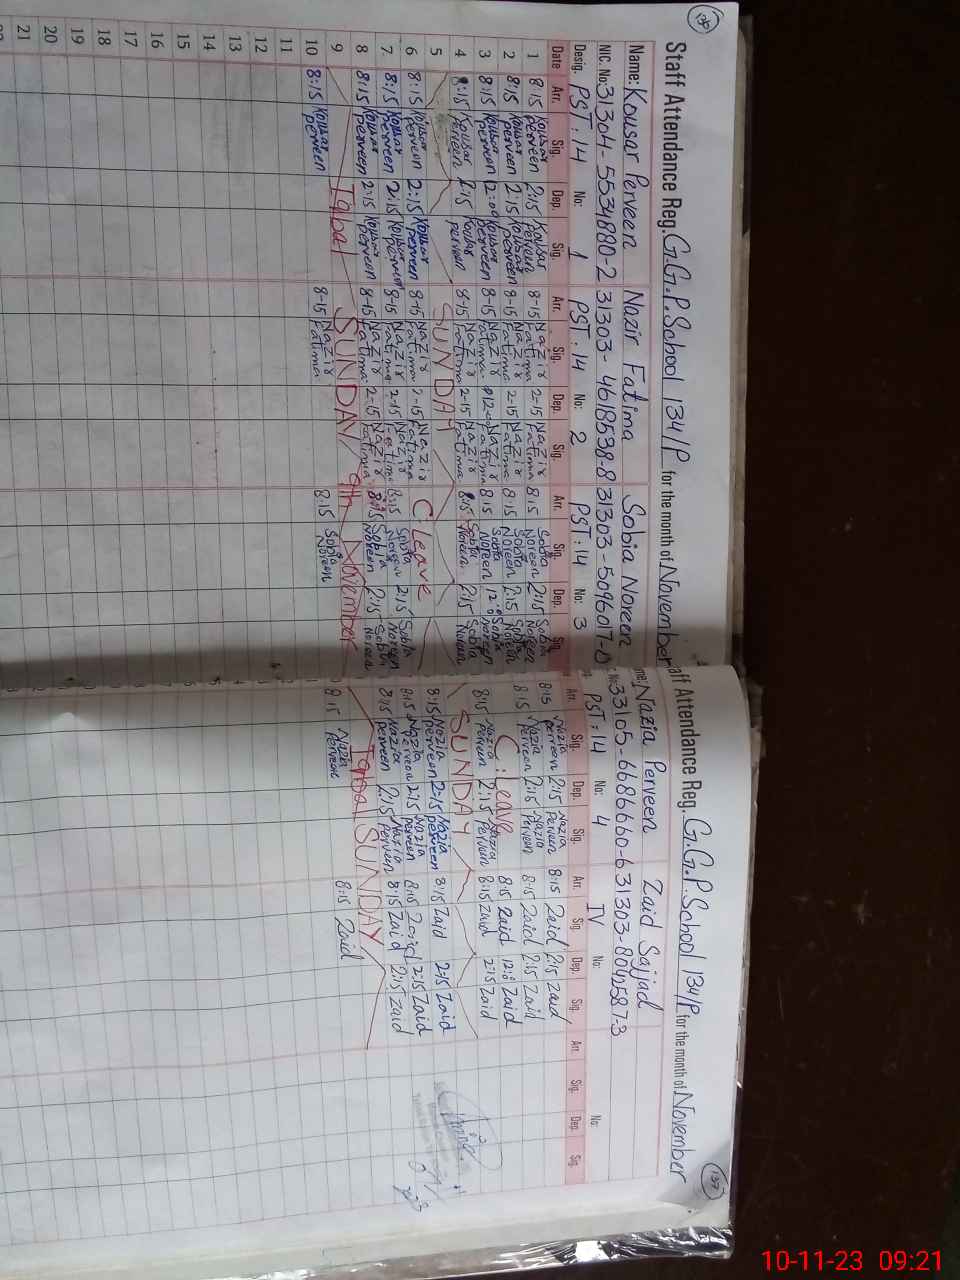 136
Staff Attendance Reg. G.G.P.School 134/P for the month of November
Name: Kousar Perveen Nazir Fatima Sobia Noreen
NIC. No: 31304-5534880-2 31303-4618598-8 31303-5096017-0
Desig. PST:14 No: 1 PST:14 No: 2 PST:14 No: 3
Date Arr. Sig. Dep. Sig. Arr. Sig. Dep. Sig. Arr. Sig. Dep. Sig.
1 8:15 Kousar Perveen 2:15 Kousar Perveen 8-15 Nazir Fatima 2-15 Nazir Fatima 8:15 Sobia Noreen 2:15 Sobia Noreen
2 8:15 Kousar Perveen 2:15 Kousar Perveen 8-15 Nazir Fatima 2-15 Nazir Fatima 8:15 Sobia Noreen 2:15 Sobia Noreen
3 8:15 Kousar Perveen Kousar Perveen 8-15 Nazir Fatima Nazir Fatima 8:15 Sobia Noreen Sobia Noreen
4 8:15 Kousar Perveen 2:15 Kousar Perveen 8-15 Nazir Fatima 2-15 Nazir Fatima 8:15 Sobia Noreen 2:15 Sobia Noreen
5 SUNDAY
6 8:15 Kousar Perveen 2:15 Kousar Perveen 8-15 Nazir Fatima 2-15 Nazir Fatima C:Leave
7 8:15 Kousar Perveen 2:15 Kousar Perveen 8-15 Nazir Fatima 2-15 Nazir Fatima 8:15 Sobia Noreen 2:15 Sobia Noreen
8 8:15 Kousar Perveen 2:15 Kousar Perveen 8-15 Nazir Fatima 2-15 Nazir Fatima 8:15 Sobia Noreen 2:15 Sobia Noreen
9 Iqbal SUNDAY 9th November
10 8:15 Kousar Perveen 8-15 Nazir Fatima 8:15 Sobia Noreen
11
12
13
14
15
16
17
18
19
20
21
137
aff Attendance Reg. G.G.P.School 134/P for the month of November
me: Nazia Perveen Zaid Sajjad
No: 33105-6686660-6 31303-8040587-3
PST:14 No: 4 IV No: No:
Arr. Sig. Dep. Sig. Arr. Sig. Dep. Sig. Arr. Sig. Dep. Sig.
8:15 Nazia Perveen 2:15 Nazia Perveen 8:15 Zaid 2:15 Zaid
8:15 Nazia Perveen 2:15 Nazia Perveen 8:15 Zaid 2:15 Zaid
C:Leave 8:15 Zaid Zaid
8:15 Nazia Perveen 2:15 Nazia Perveen 8:15 Zaid 2:15 Zaid
SUNDAY
8:15 Nazia Perveen 2:15 Nazia Perveen 8:15 Zaid 2:15 Zaid
8:15 Nazia Perveen 2:15 Nazia Perveen 8:15 Zaid 2:15 Zaid
8:15 Nazia Perveen 2:15 Nazia Perveen 8:15 Zaid 2:15 Zaid
Iqbal SUNDAY
8:15 Nazia Perveen 8:15 Zaid
10-11-23 09:21